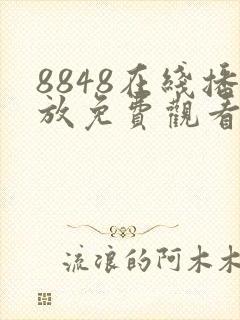 8848在綫播
放免費觀看
流浪的阿木木